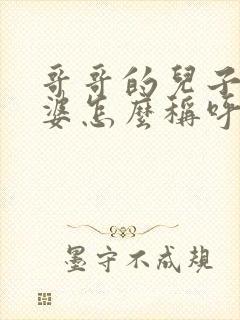 哥哥的兒子
婆怎麼稱呼
墨守不成規